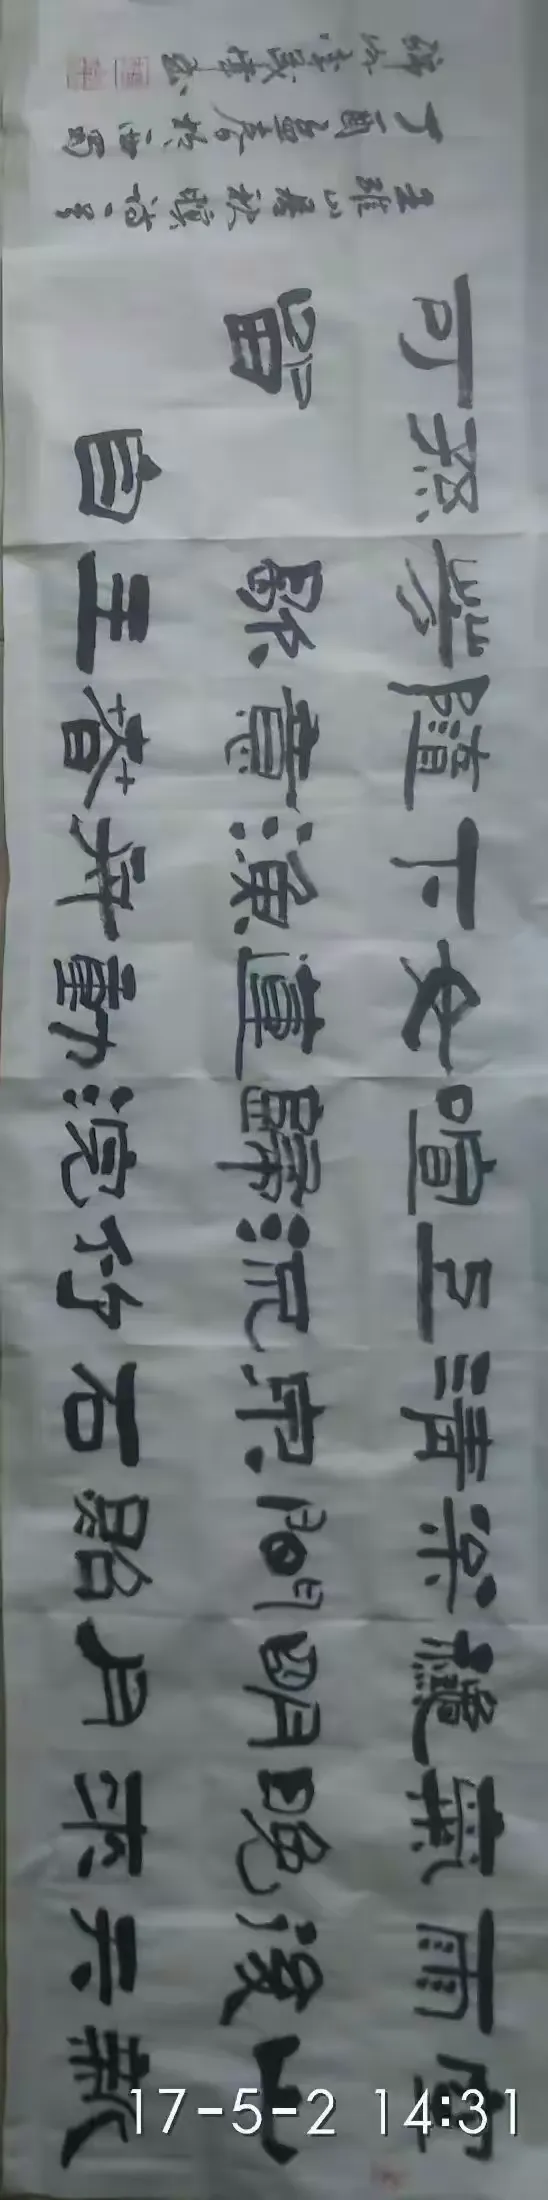 空山新
雨後天
氣晚來
秋明月
松間照
清泉石
上流竹
喧歸浣
女蓮動
下漁舟
隨意春
芳歇王
孫自
可留
王維山居秋暝詩一首
丁酉孟春於
17-5-2 14:31